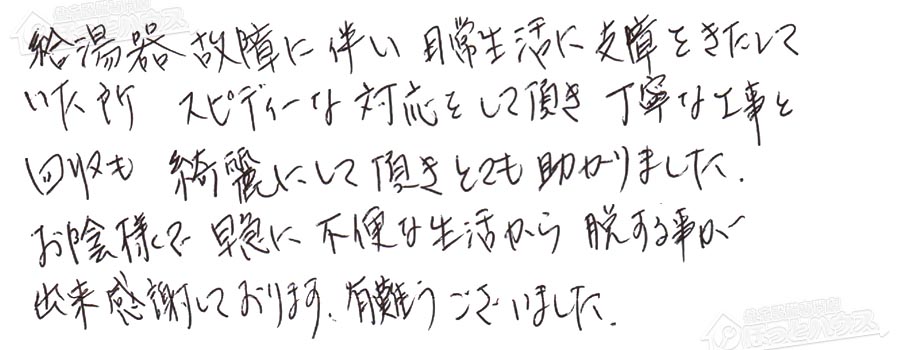 給湯器故障に伴い日常生活に支障をきたして
いた所 スピディーな対応をして頂き 丁寧な工事と
回収も 綺麗にして頂きとても助かりました.
お陰様で 早急に不便な生活から 脱する事が
出来感謝しております. 有難うございました.
ほっとハウス
ほっとハウス